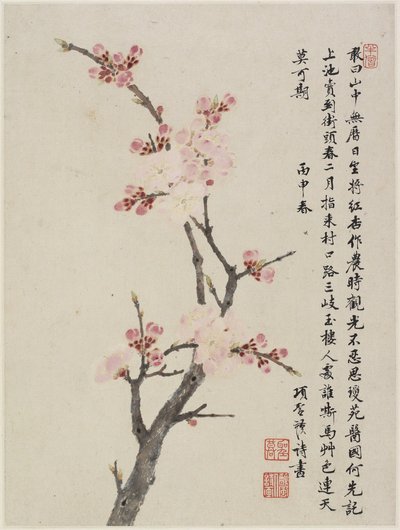 敢曰山中無曆日坐將紅杏作農時觀光不惡思瓊苑醫國何先記
上池賣到街頭春二月指來村口路三岐玉樓人誰嘶馬艸色連天
莫可期
丙申春
項聖謨詩書